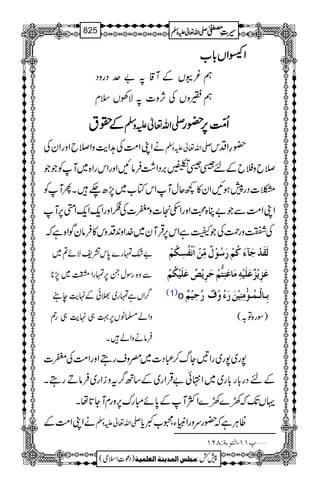 سیرتِ مصطفیٰ صلی اللہ تعالیٰ علیہ وسلم 825
اکیسواں باب
ہم غریبوں کے آقا پہ بے حد درود
ہم فقیروں کی ثروت پہ لاکھوں سلام
اُمّت پر حضور صلی اللہ تعالیٰ علیہ وسلم کے حقوق
حضور اقدس صلی اللہ تعالیٰ علیہ وسلم نے اپنی امت کی ہدایت واصلاح اور ان کی
صلاح و فلاح کے لئے جیسی جیسی تکلیفیں برداشت فرمائیں اور اس راہ میں آپ کو جو جو
مشکلات در پیش ہوئیں ان کا کچھ حال آپ اس کتاب میں پڑھ چکے ہیں۔ پھر آپ کو
اپنی امت سے جو بے پناہ محبت اور اسکی نجات ومغفرت کی فکر اور ایک ایک امتی پر آپ
کی شفقت و رحمت کی جو کیفیت ہے اس پر قرآن میں خداوند قدوس کا فرمان گواہ ہے کہ
لَقَدْ جَآءَكُمْ رَسُوْلٌ مِّنْ اَنْفُسِكُمْ
عَزِيْزٌ عَلَيْهِ مَا عَنِتُّمْ حَرِيْصٌ عَلَيْكُمْ
بِالْمُؤْمِنِيْنَ رَءُوْفٌ رَّحِيْمٌ ۝ (۱)
(سورۂ توبہ)
بے شک تمہارے پاس تشریف لائے تم میں
سے وہ رسول جن پر تمہارا مشقت میں پڑنا
گراں ہے تمہاری بھلائی کے نہایت چاہنے
والے مسلمانوں پر بہت ہی نہایت ہی رحم
فرمانے والے ہیں۔
پوری پوری راتیں جاگ کر عبادت میں مصروف رہتے اور امت کی مغفرت
کے لئے دربار باری میں انتہائی بے قراری کے ساتھ گریہ و زاری فرماتے رہتے۔
یہاں تک کہ کھڑے کھڑے اکثر آپ کے پائے مبارک پر ورم آ جاتا تھا۔
ظاہر ہے کہ حضور سرور انبیاء، محبوب کبریا صلی اللہ تعالیٰ علیہ وسلم نے اپنی امت کے
۱۔ پ۱۱، التوبۃ: ۱۲۸
پیش کش: مجلس المدینۃ العلمیۃ (دعوتِ اسلامی)